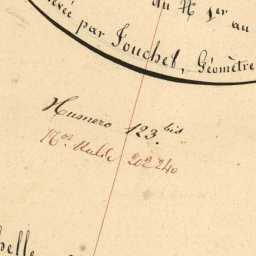 du N 1er au
levée par Fouchet, Géomètre
Numero 123 bis
Nos 202 240
belle